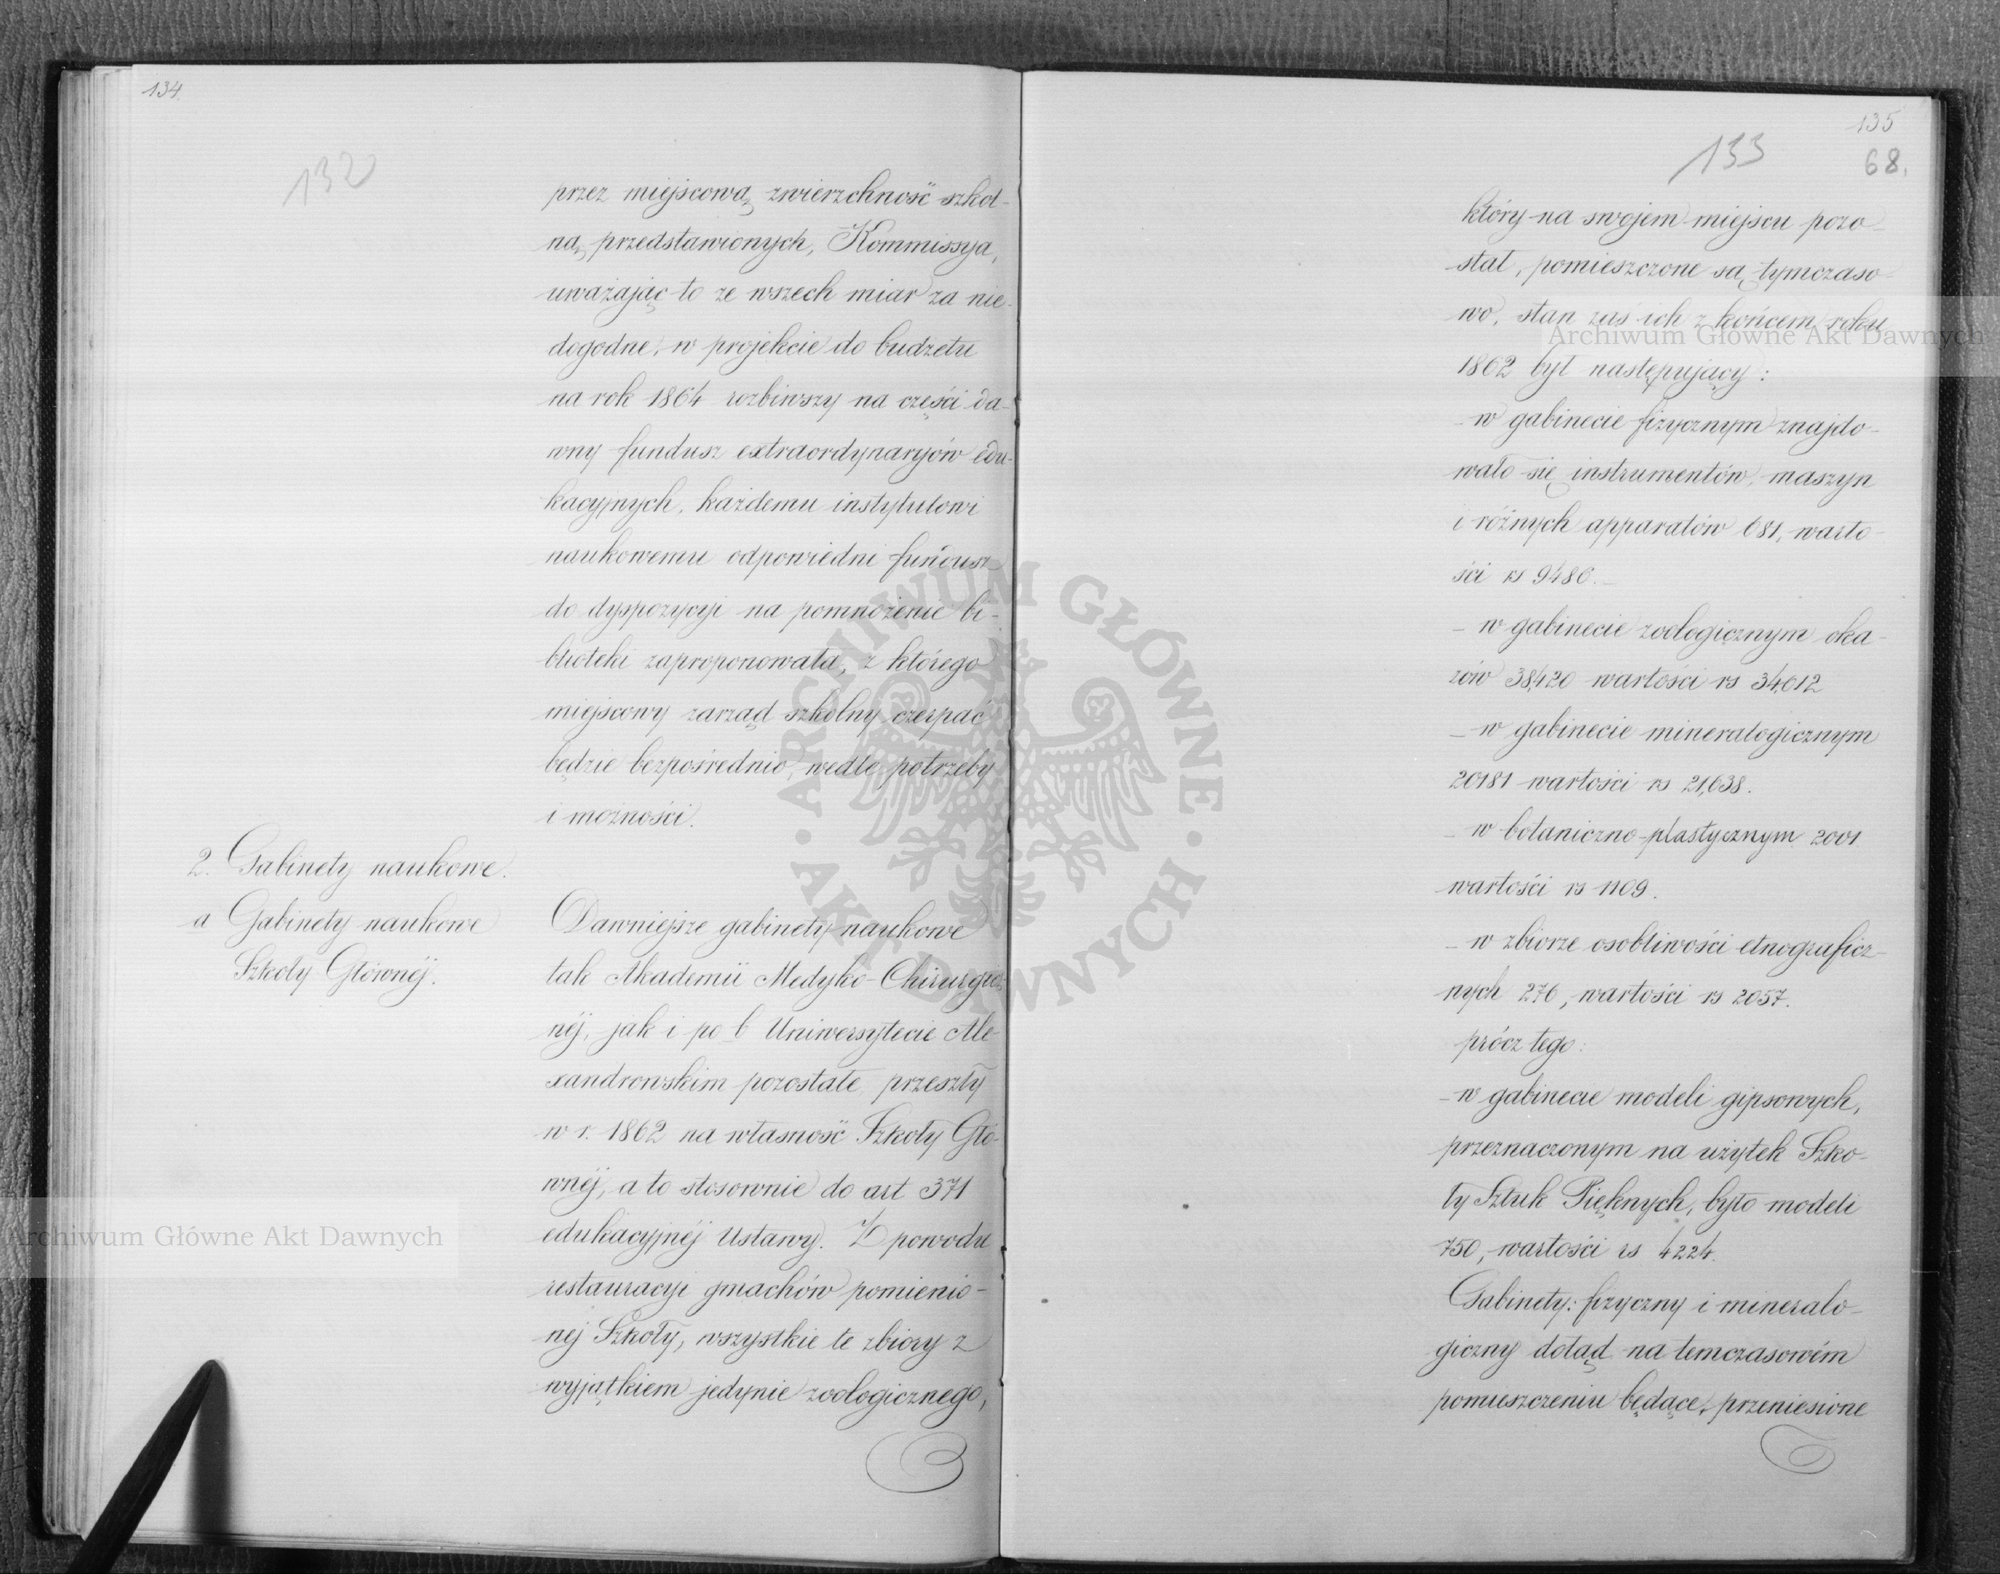 134.
132
przez miejscową zwierzchność szkol-
ną przedstawionych, Kommissya,
uważając to ze wszech miar za nie-
dogodne, w projekcie do budżetu
na rok 1864 rozbiwszy na części da-
wny fundusz extraordynaryjów edu-
kacyjnych, każdemu instytutowi
naukowemu odpowiedni fundusz
do dyspozycyi na pomnożenie bi-
blioteki zaproponowała, z którego
miejscowy zarząd szkolny czerpać
będzie bezpośrednio, wedle potrzeby
i możności.
2. Gabinety naukowe.
a Gabinety naukowe
Szkoły Głównéj.
Dawniejsze gabinety naukowe
tak Akademii Medyko-Chirurgicz-
néj, jak i po b Uniwersytecie Ale-
xandrowskim pozostałe, przeszły
w r. 1862 na własność Szkoły Głó-
wnéj, a to stosownie do art 371
edukacyjnéj Ustawy. Z powodu
restauracyi gmachów pomienio-
nej Szkoły, wszystkie te zbiory z
wyjątkiem jedynie zoologicznego,
135
133
68.
który na swojem miejscu pozo-
stał, pomieszczone są tymczaso-
wo, stan zaś ich z końcem roku
1862 był następujący:
- w gabinecie fizycznym znajdo-
wało się instrumentów, maszyn
i różnych apparatów 681, warto-
ści rs 9486.-
- w gabinecie zoologicznym oka-
zów 38,420 wartości rs 34,612
- w gabinecie mineralogicznym
20181 wartości rs 21,638.
- w botaniczno-plastycznym 2001
wartości rs 1109.
- w zbiorze osobliwości etnograficz-
nych 276, wartości rs 2057.
prócz tego:
- w gabinecie modeli gipsowych,
przeznaczonym na użytek Szko-
ły Sztuk Pięknych, było modeli
750, wartości rs 4224.
Gabinety: fizyczny i mineralo-
giczny dotąd na temczasowém
pomieszczeniu będące, przeniesione
Archiwum Główne Akt Dawnych
Archiwum Główne Akt Dawnych
ARCHIWUM GŁÓWNE · AKT DAWNYCH ·